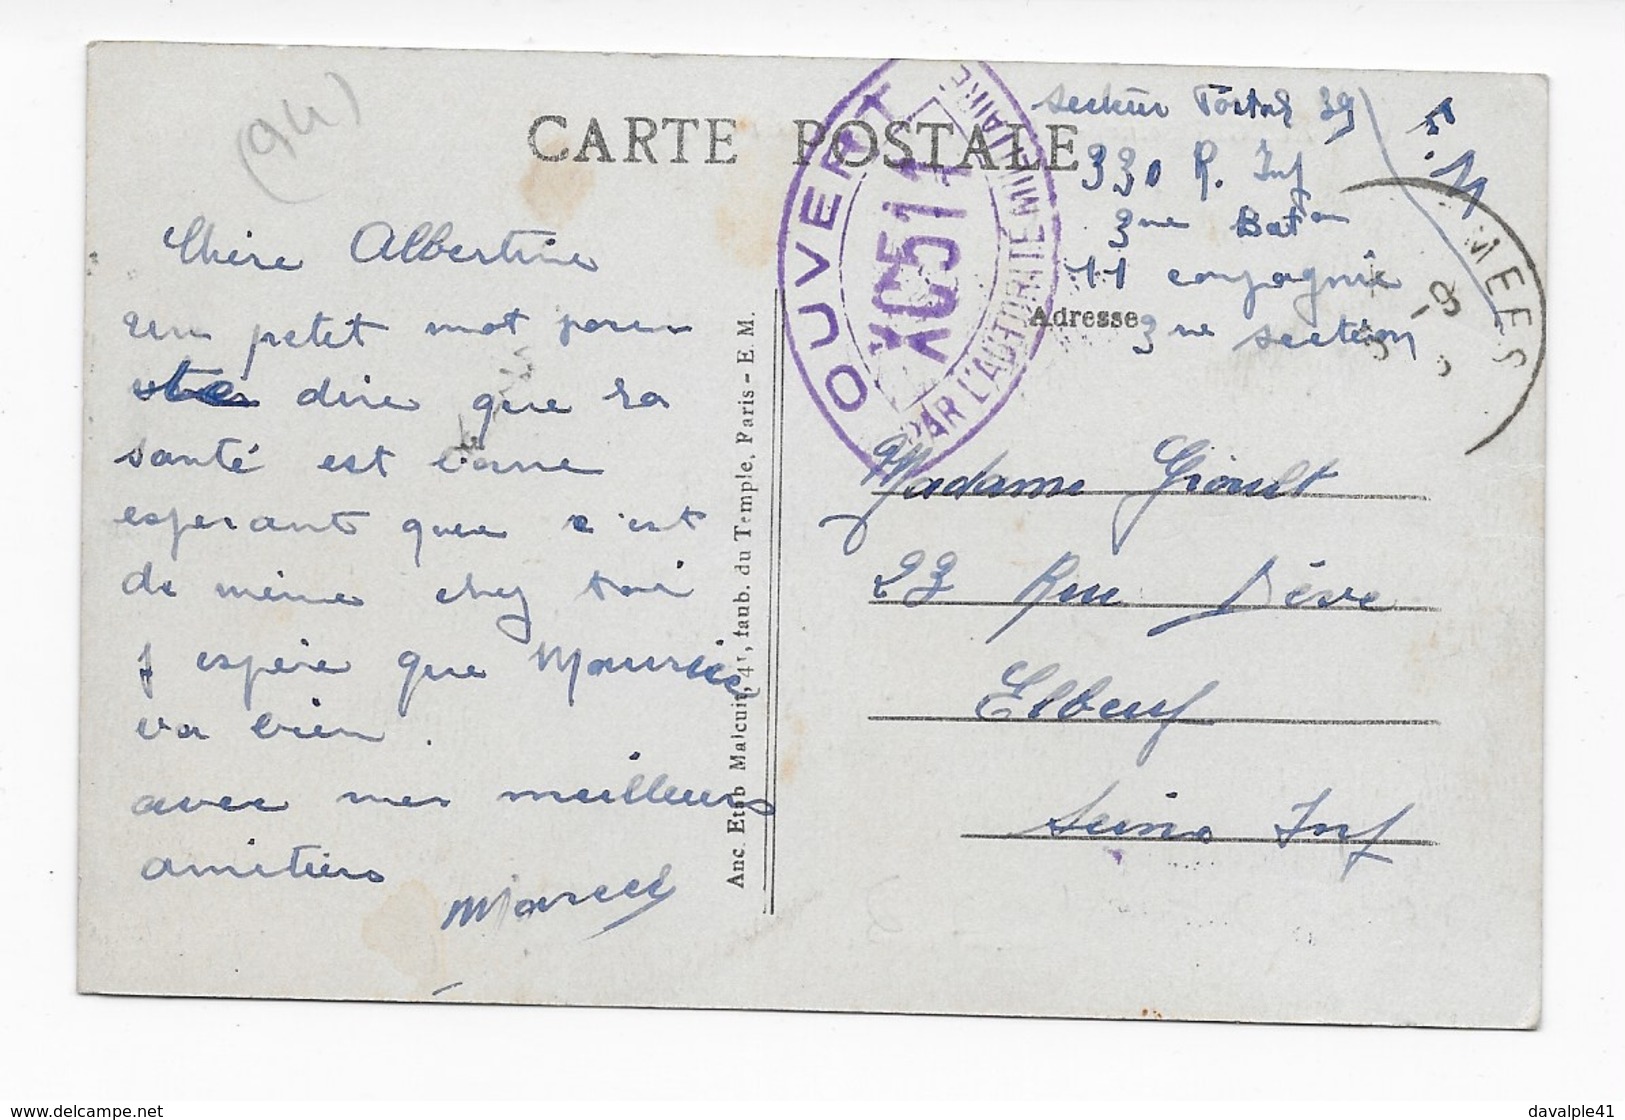 (94)
CARTE POSTALE
Chère Albertine
un petit mot pour
te dire que sa
santé est bonne
esperant que c'est
de même chez toi
J espère que Maurice
va bien.
avec mes meilleurs
amitiers
Marcel
Anc. Etab Malcuit, 41, faub. du Temple, Paris - E. M.
OUVERT
XC51
PAR L'AUTORITÉ MILITAIRE
Secteur Postal 39
330 R. Inf
3me Baton
11 conpagnie
Adresse
3me section
MEES
Madame Gioult
23 Rue Dève
Elbeuf
Seine Inf
davalple41